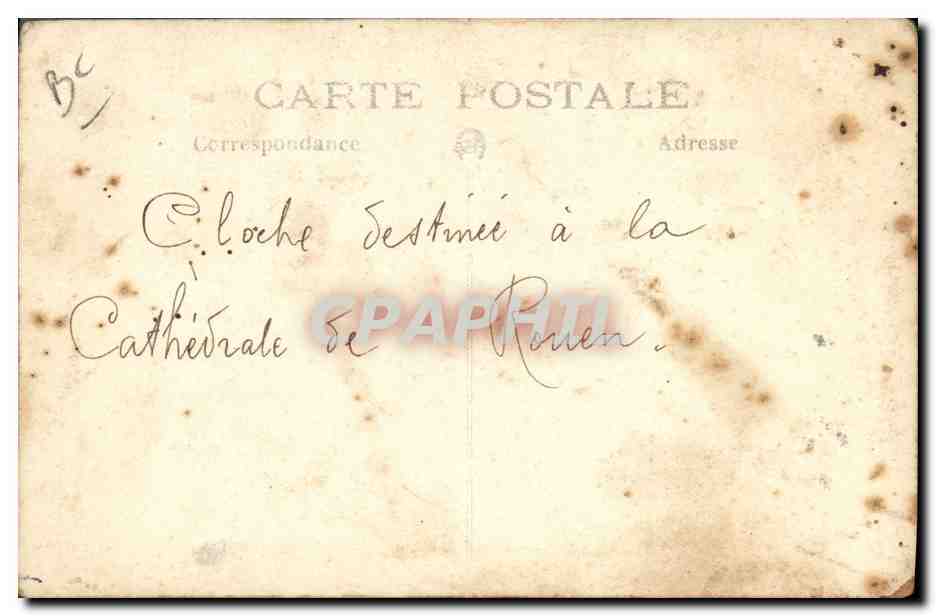 BC
CARTE POSTALE
Correspondance Adresse
Cloche destinée à la
Cathédrale de Rouen.
CPAPHIL